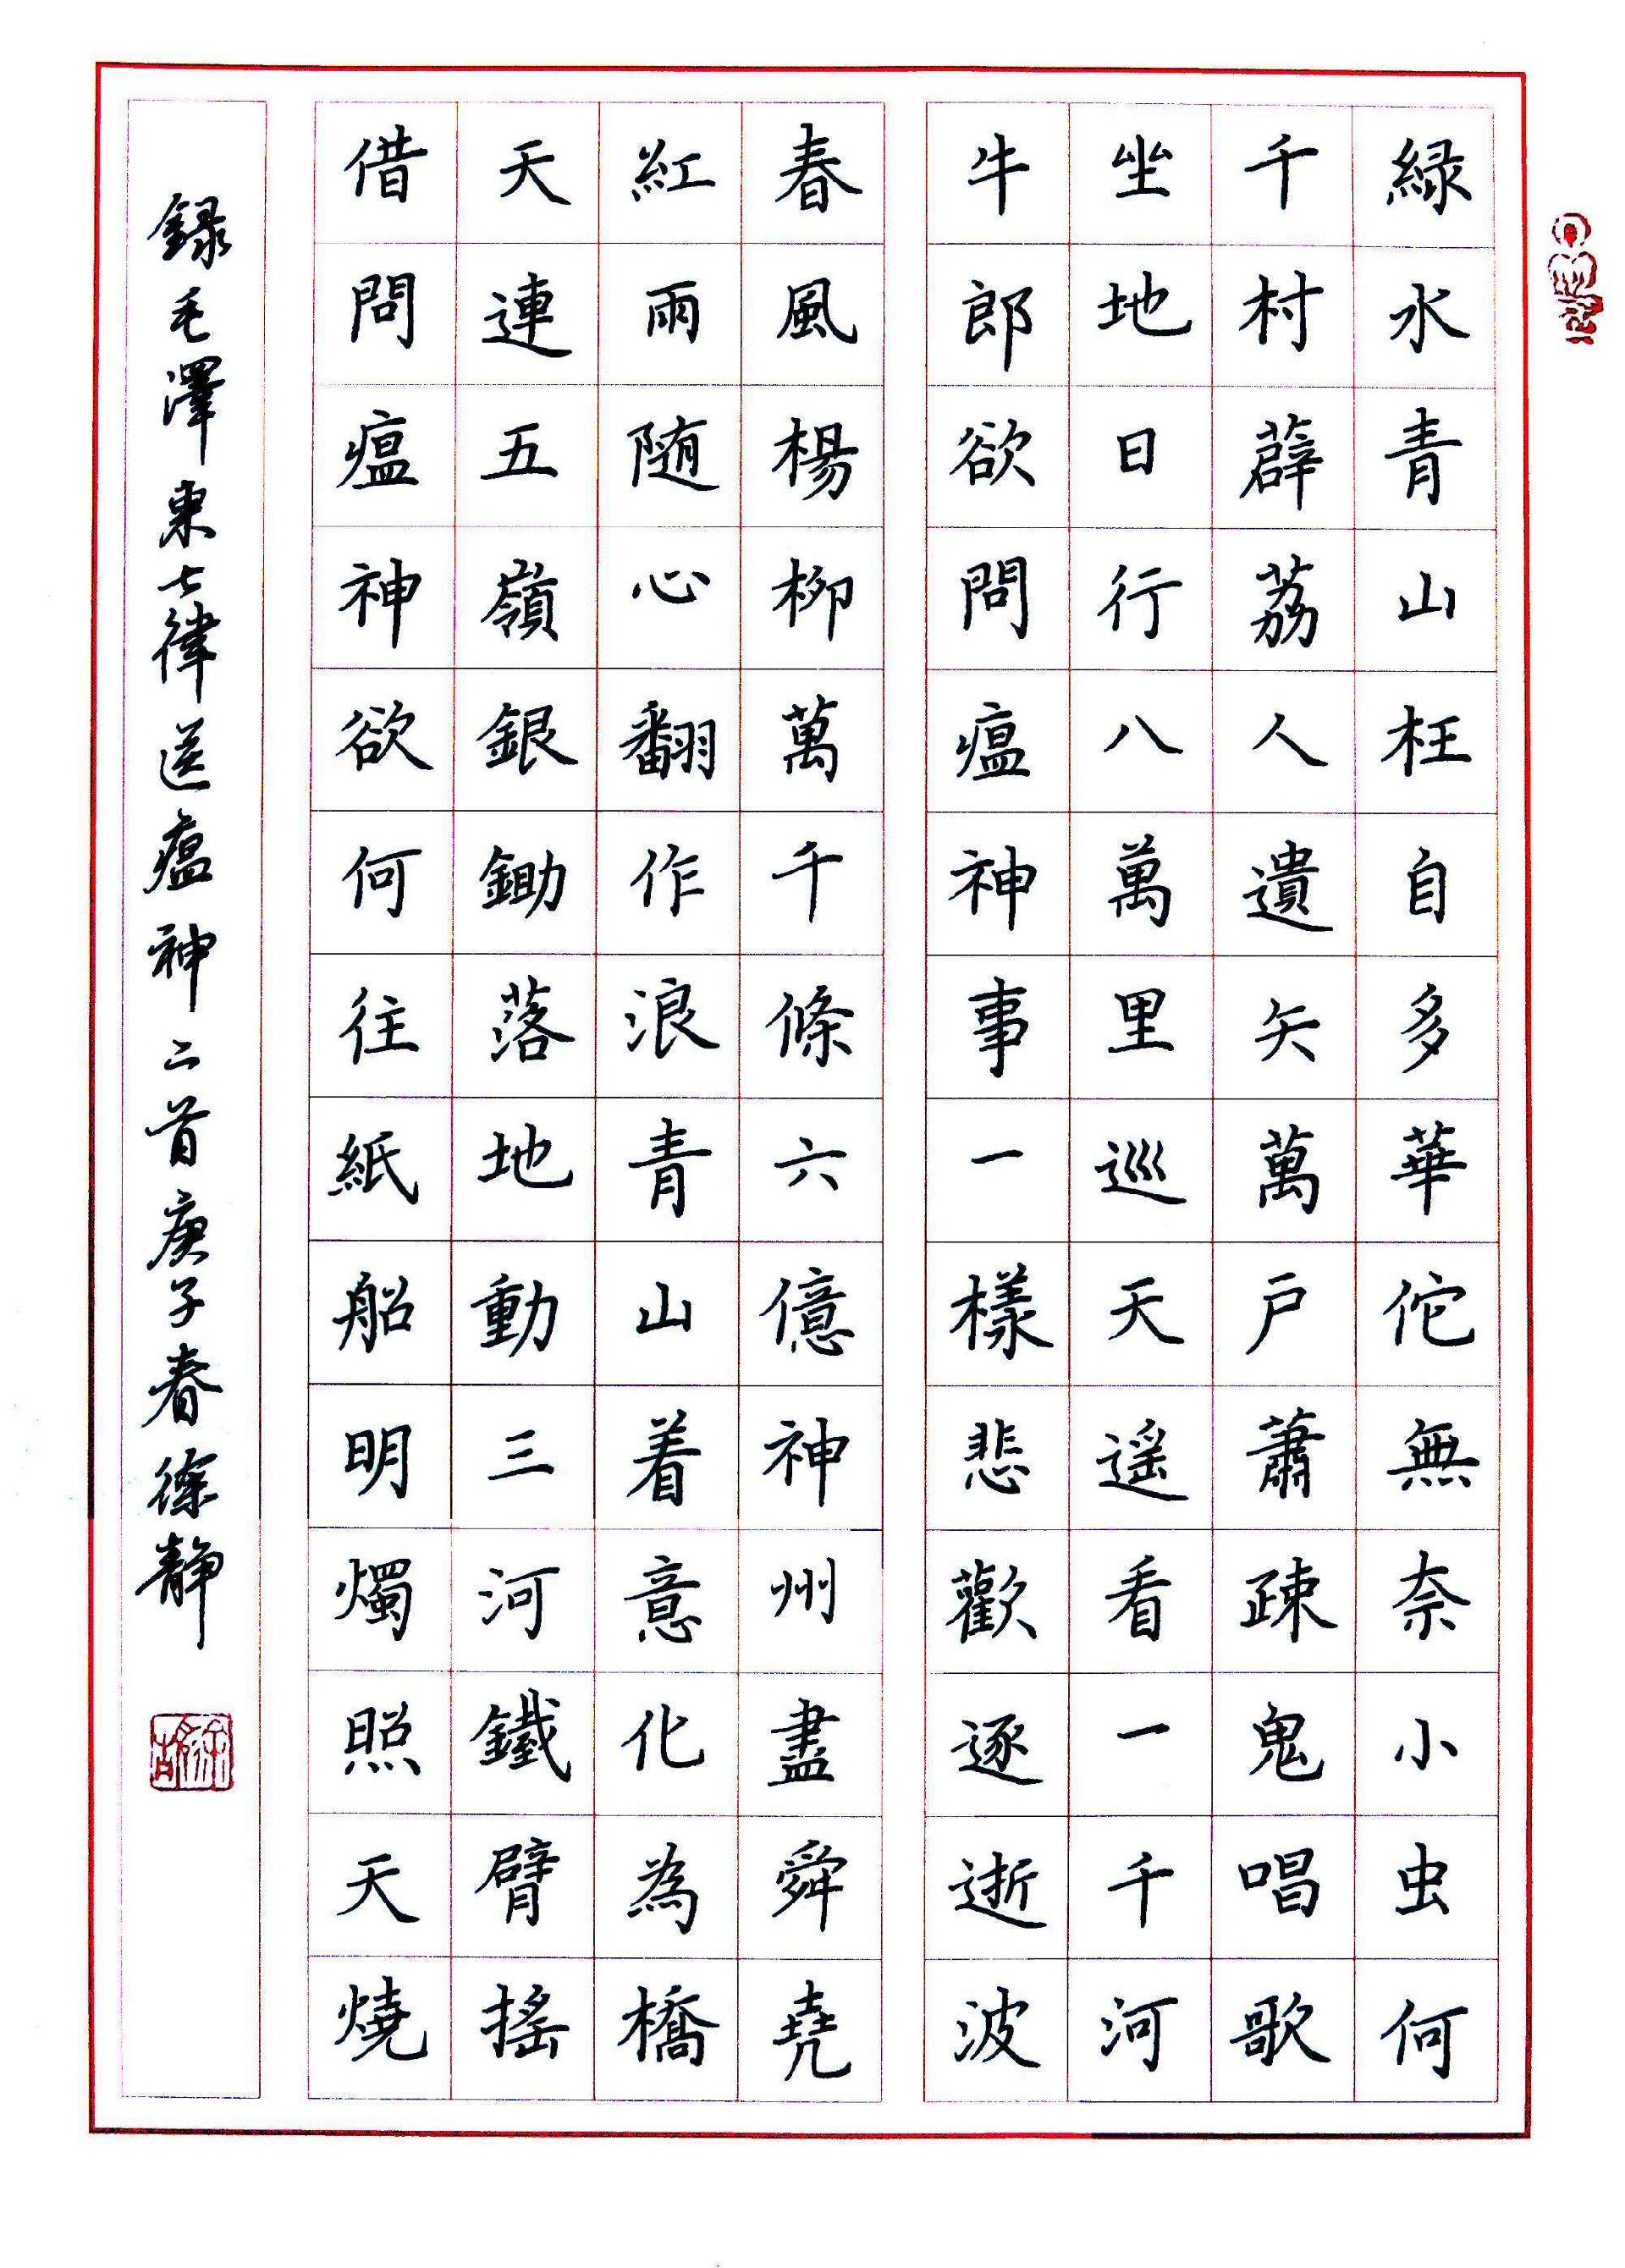 緑水青山枉自多華佗無奈小虫何
千村薜荔人遺矢萬户蕭疎鬼唱歌
坐地日行八萬里巡天遥看一千河
牛郎欲問瘟神事一樣悲歡逐逝波
春風楊柳萬千條六億神州盡舜堯
紅雨随心翻作浪青山着意化為橋
天連五嶺銀鋤落地動三河鐵臂摇
借問瘟神欲何往紙船明燭照天燒
録毛澤東七律送瘟神二首庚子春徐靜